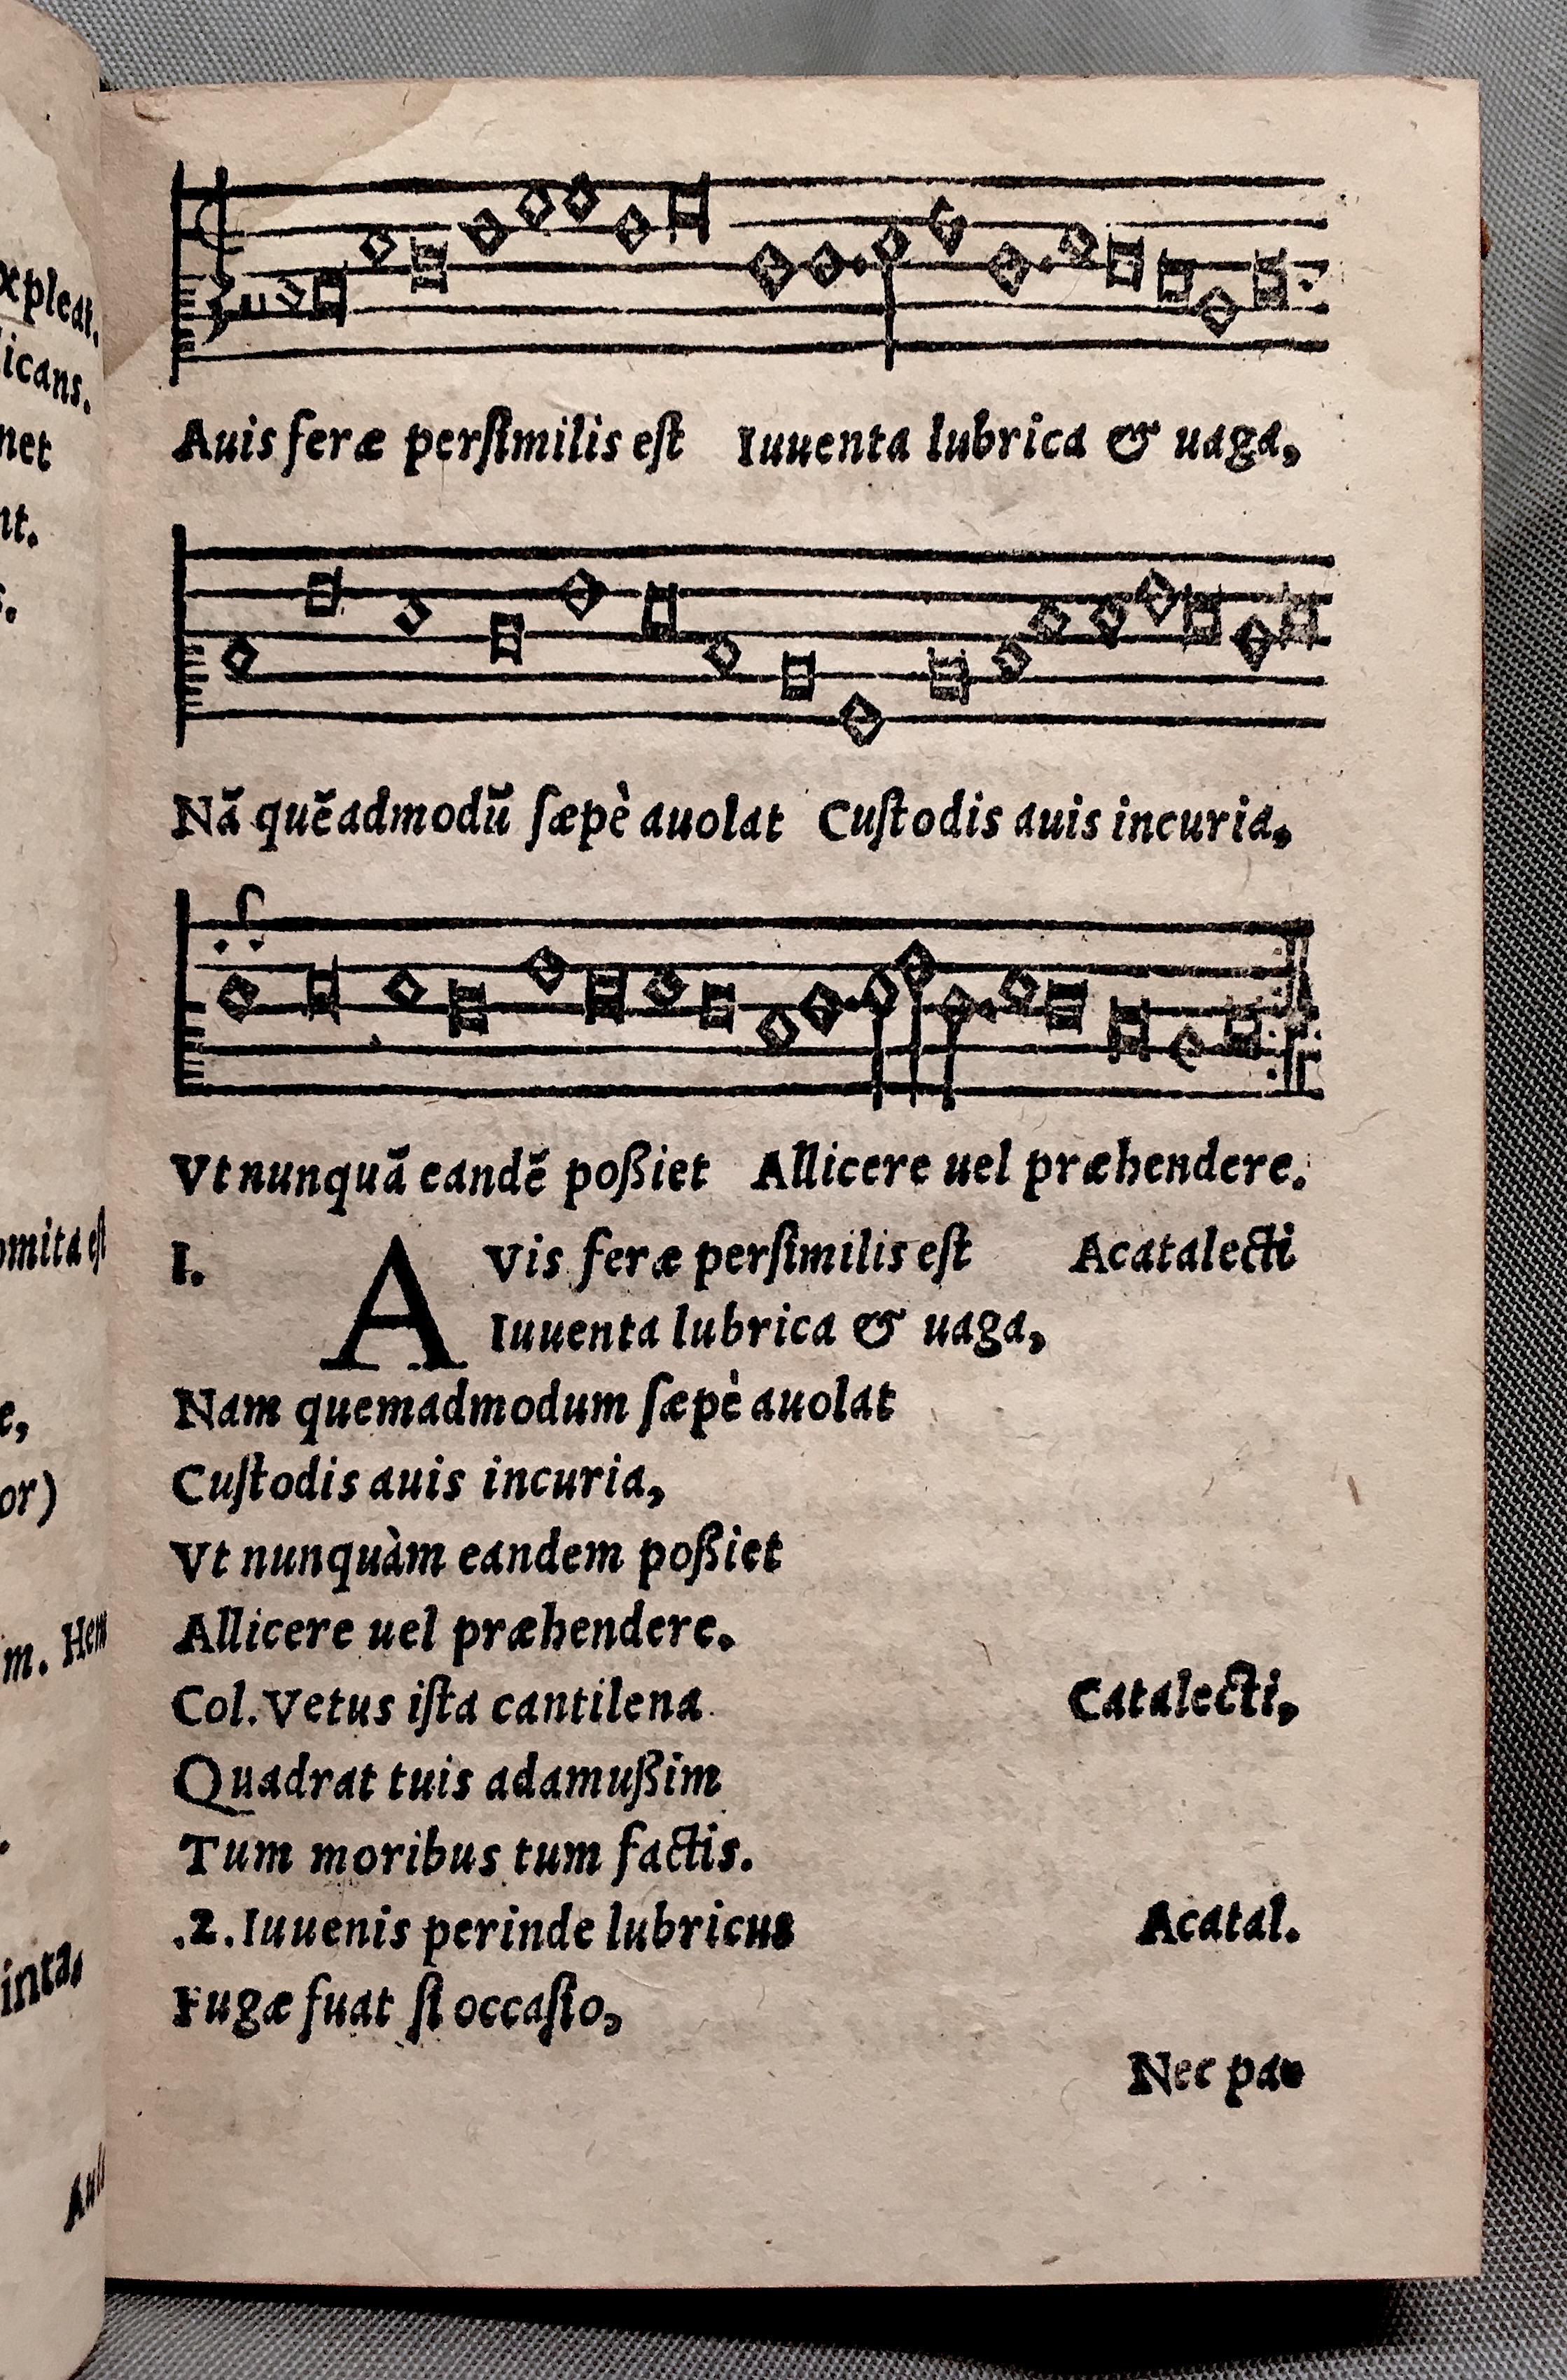 xpleat.
icans.
net
nt.
s.
omita est
e,
or)
m. Hem
inta,
Auli
Auis feræ persimilis est Iuuenta lubrica & uaga,
Nã quẽadmodũ sæpè auolat Custodis auis incuria,
Vt nunquã eandẽ poßiet Allicere uel præhendere.
I. AVis feræ persimilis est Acatalecti
Iuuenta lubrica & uaga,
Nam quemadmodum sæpè auolat
Custodis auis incuria,
Vt nunquàm eandem poßiet
Allicere uel præhendere.
Col. Vetus ista cantilena Catalecti,
Quadrat tuis adamußim
Tum moribus tum factis.
.2. Iuuenis perinde lubricus Acatal.
Fugæ fuat si occasio,
Nec pa